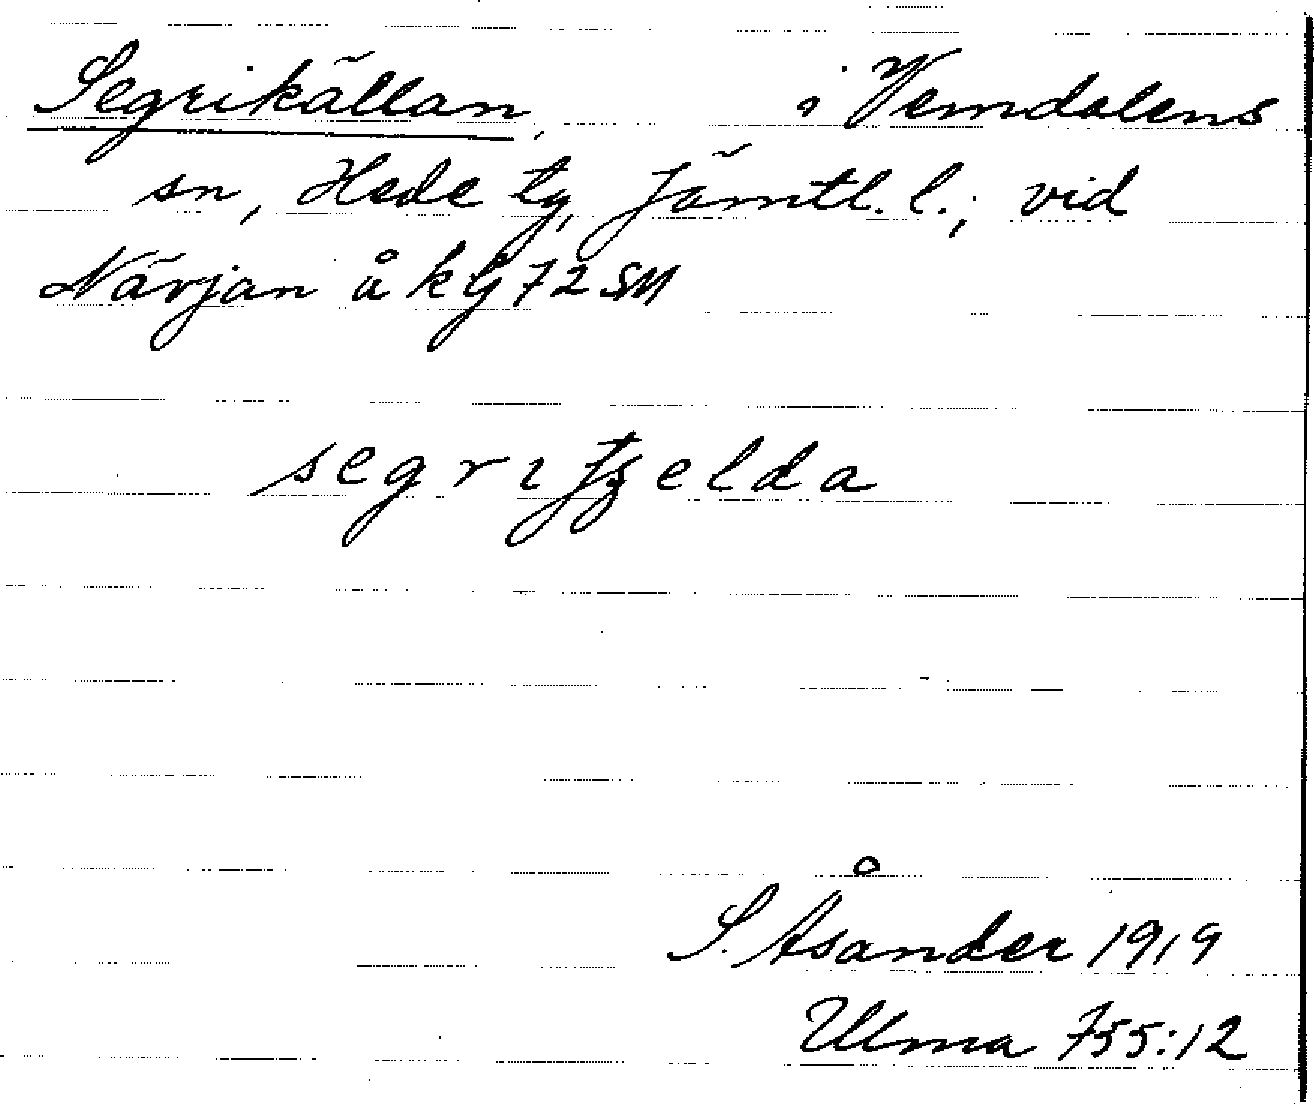 Segrikällan, i Vemdalens
sn, Hede tg, Jämtl. l.; vid
Närjan å kbl 72 SM
segritʒelda
S. Åsander 1919
Ulma 755:12